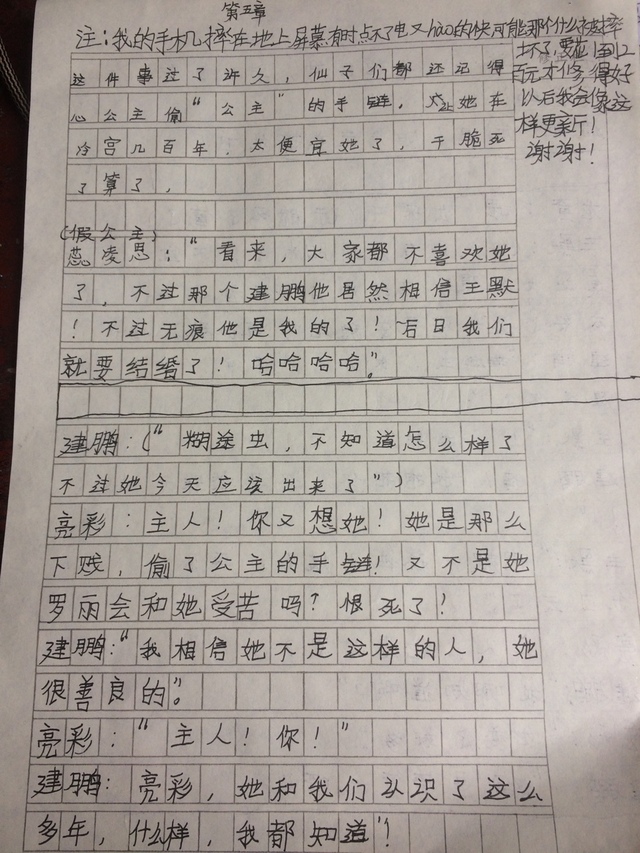 第五章
注:我的手机摔在地上屏幕有时点不了电又hào的快可能那个什么被摔
坏了,要
百元才修得好
以后我会像这
样更新!
谢谢!
这件事过了许久,仙子们都还记得
心公主偷“公主”的手链,
让她在
冷宫几百年.太便宜她了,干脆死
了算了,
(假公主)
蕊凌思:“看来,大家都不喜欢她
了,不过那个建鹏他居然相信王默
!不过无痕他是我的了!后日我们
就要结婚了!哈哈哈哈”.
建鹏:(“糊途虫,不知道怎么样了
不过她今天应该出来了”)
亮彩:主人!你又想她!她是那么
下贱,偷了公主的手链!又不是她
罗丽会和她受苦吗?恨死了!
建鹏:“我相信她不是这样的人,她
很善良的”。
亮彩:“主人!你!”
建鹏:亮彩,她和我们认识了这么
多年,什么样,我都知道”!